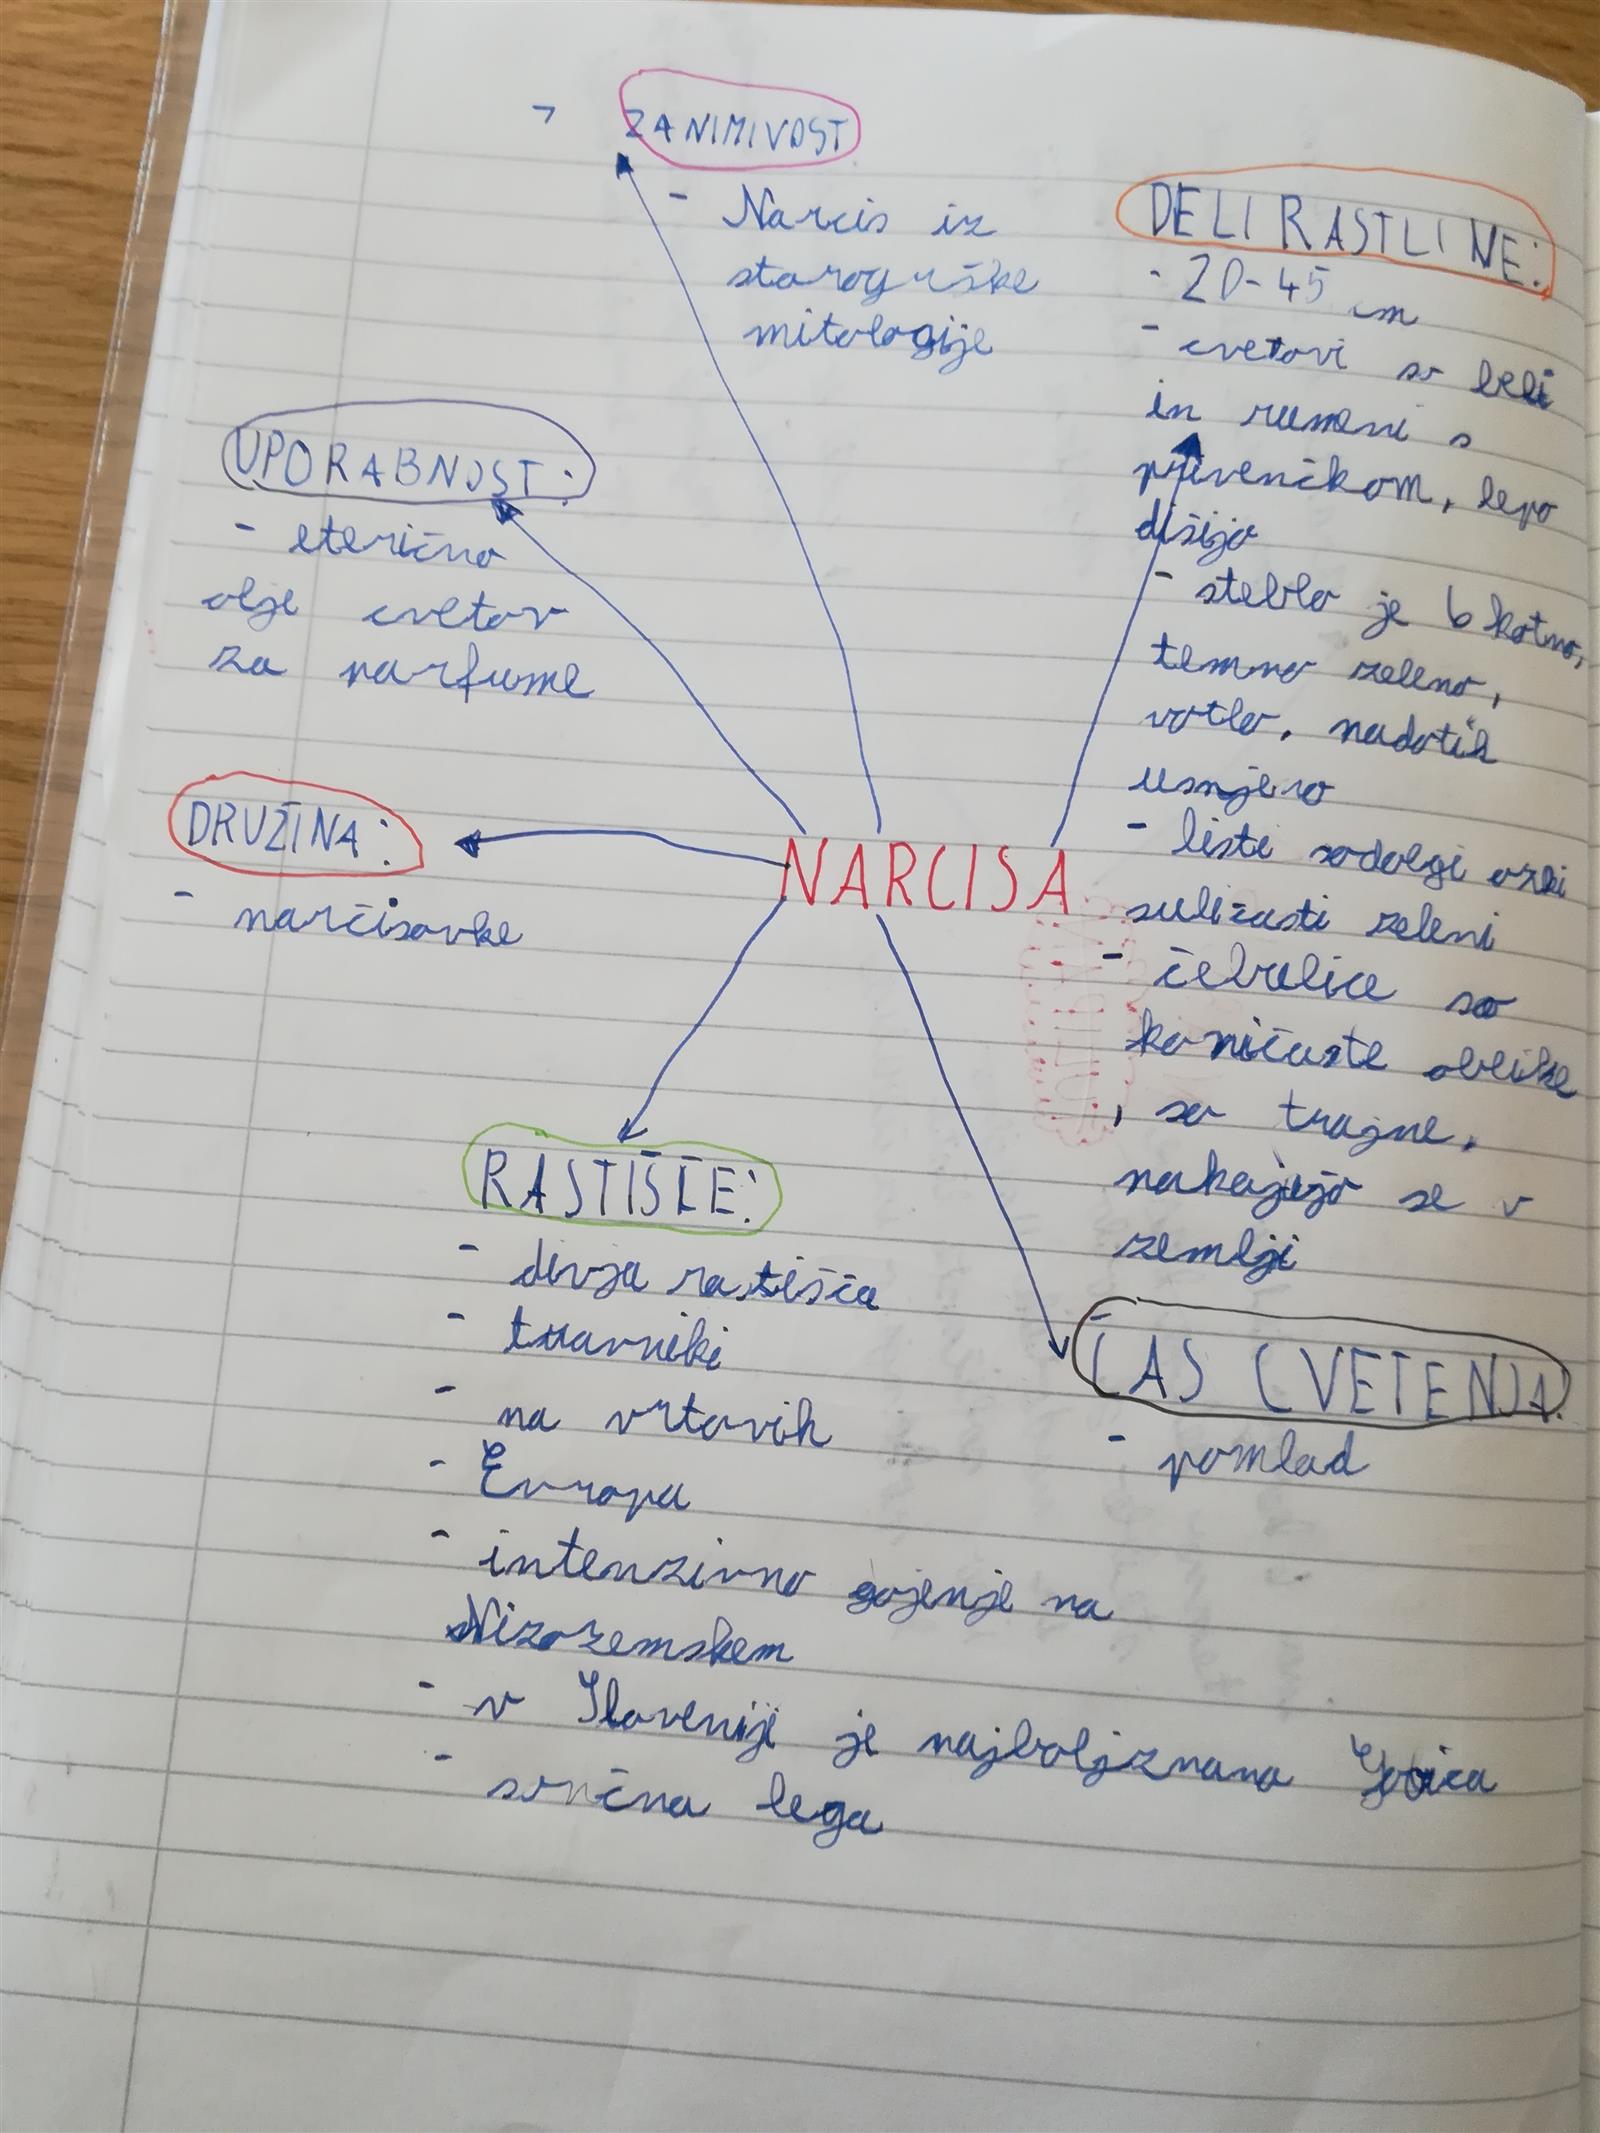 ZANIMIVOST
- Narcis iz
starogrške
mitologije
DELI RASTLINE:
- 20-45 cm
- cvetovi so beli
in rumeni s
privenčkom, lepo
dišijo
- steblo je 6 kotno,
temno zeleno,
votlo, nadotik
usnjero
- listi sodolgi ozki
suličasti zeleni
- čebulice so
koničaste oblike
, so trajne,
nahajajo se v
zemlji
UPORABNOST:
- eterično
olje cvetov
za parfume
DRUŽINA:
- narčisovke
NARCISA
RASTIŠČE:
- divja rastišča
- travniki
- na vrtovih
- Evropa
- intenzivno gojenje na
Nizozemskem
- v Sloveniji je najboljznana Golica
- sončna lega
ČAS CVETENJA:
- pomlad